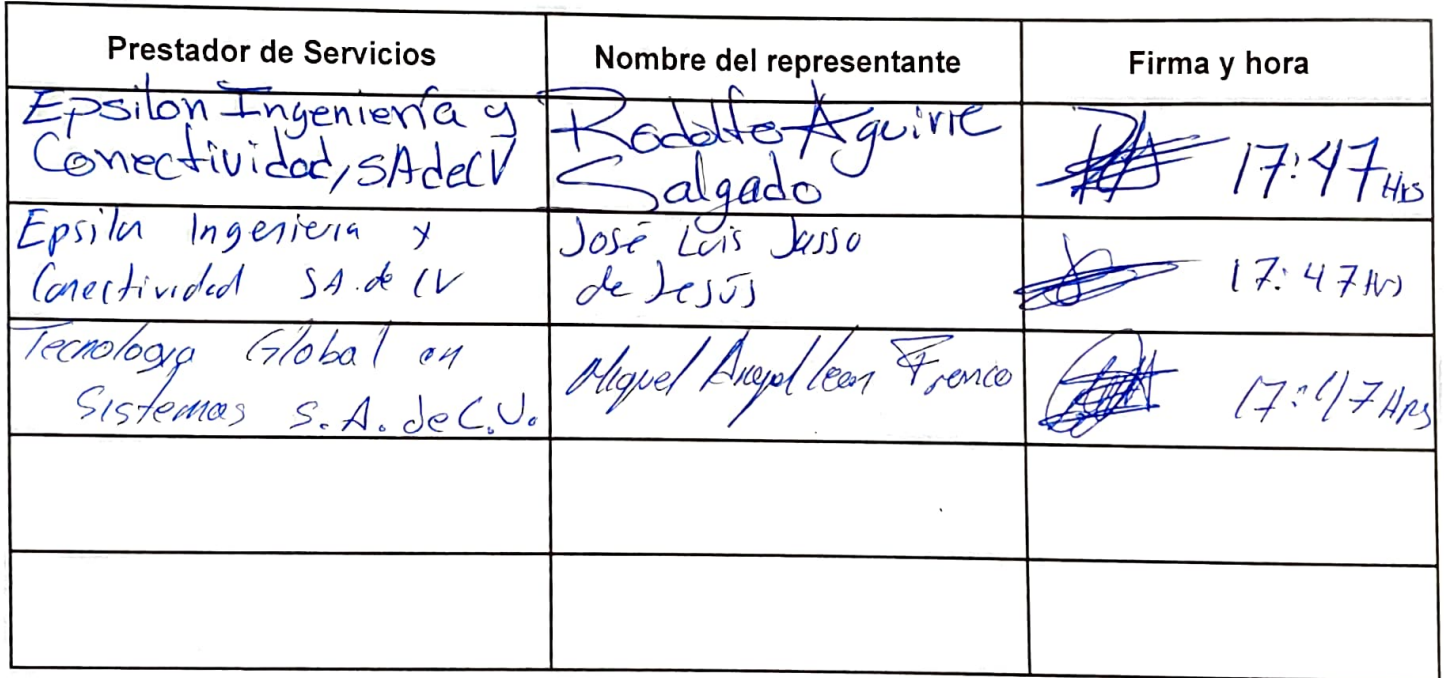 Prestador de Servicios Nombre del representante Firma y hora
Epsilon Ingeniería y
Conectividad, SAdeCV
Rodolfo Aguirre
Salgado
17:47 Hrs
Epsilon Ingenieria y
Conectividad SA. de CV
José Luis Jasso
de Jesús
17:47 Hrs
Tecnologia Global en
Sistemas S.A. de C.V.
Miguel Angel Leon Franco
17:47 Hrs